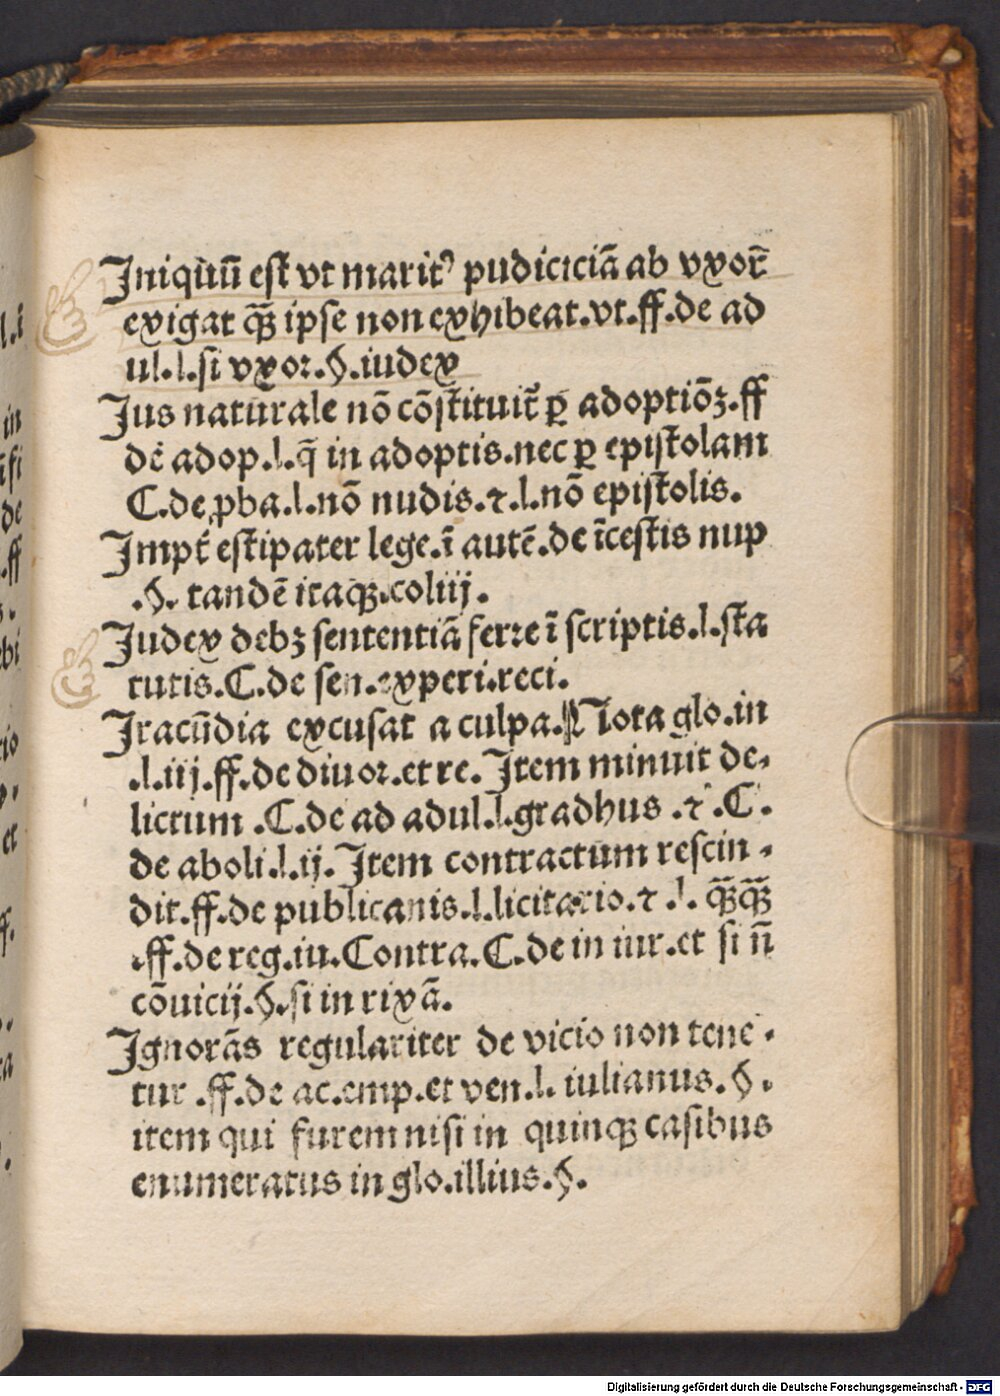 Iniquũ eſt vt maritꝰ pudiciciã ab vxor̃
exigat q̃ꝫ ipſe non exhibeat.vt.ff.de ad
ul.l.ſi vxor.§.iudex
Jus naturale nõ cõſtituit̃ ꝑ adoptiõꝫ.ff
de adop.l.q̃ in adoptis.nec ꝑ epiſtolam
C.de ꝓba.l.nõ nudis.⁊.l.nõ epiſtolis.
Imp̱t̃ eſtipater lege.ĩ autẽ.de ĩceſtis nup
.§. tandẽ itaqꝫ.coliij.
Judex debꝫ ſententiã ferre ĩ ſcriptis.l.ſta
tutis.C.de ſen.experi.reci.
Iracũdia excuſat a culpa.¶Nota glo.in
.l.iij.ff.de diuor.et re. Item minuit de-
lictum .C.de ad adul.l.gradhus .⁊ .C.
de aboli.l.ij. Item contractum reſcin-
dit.ff.de publicanis.l.licitatio.⁊ .l. q̃ꝫq̃ꝫ
.ff.de reg.iu.Contra.C.de in iur.et ſi ñ
cõuicij.§.ſi in rixã.
Ignorãs regulariter de vicio non tene-
tur .ff.de ac.emp.et ven.l. iulianus.§.
item qui furem niſi in quinqꝫ caſibus
enumeratus in glo.illius.§.
Digitalisierung gefördert durch die Deutsche Forschungsgemeinschaft - DFG